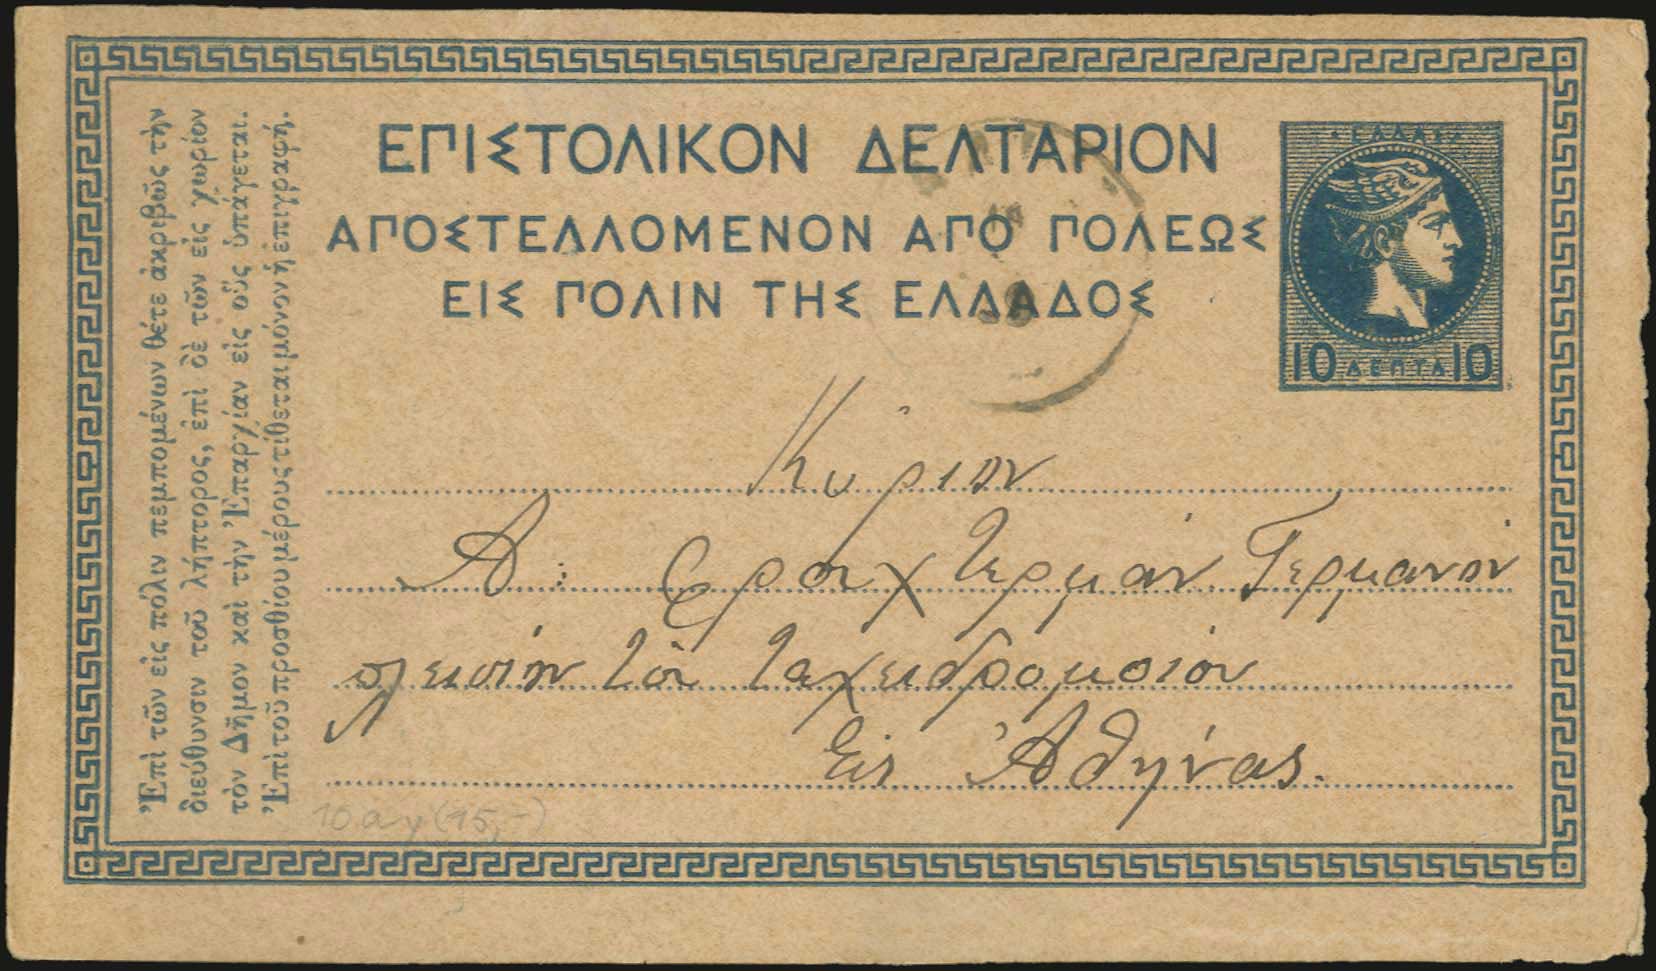 ΕΠΙΣΤΟΛΙΚΟΝ ΔΕΛΤΑΡΙΟΝ
ΑΠΟΣΤΕΛΛΟΜΕΝΟΝ ΑΠΟ ΠΟΛΕΩΣ
ΕΙΣ ΠΟΛΙΝ ΤΗΣ ΕΛΛΑΔΟΣ
ΕΛΛΑΣ
10 ΛΕΠΤΑ 10
Ἐπὶ τῶν εἰς πόλιν πεμπομένων θέτε ἀκριβῶς τὴν
διεύθυνσιν τοῦ λήπτορος, ἐπὶ δὲ τῶν εἰς χωρίον
τὸν Δῆμον καὶ τὴν Ἐπαρχίαν εἰς οὓς ὑπάγεται.
Ἐπὶ τοῦ προσθίου μέρους τίθεται μόνον ἡ ἐπιγραφή.
Κύριον
Α: Φραχτερμάν Γερμανόν
πλησίον τοῦ ταχυδρομείου
Εἰς Ἀθήνας.